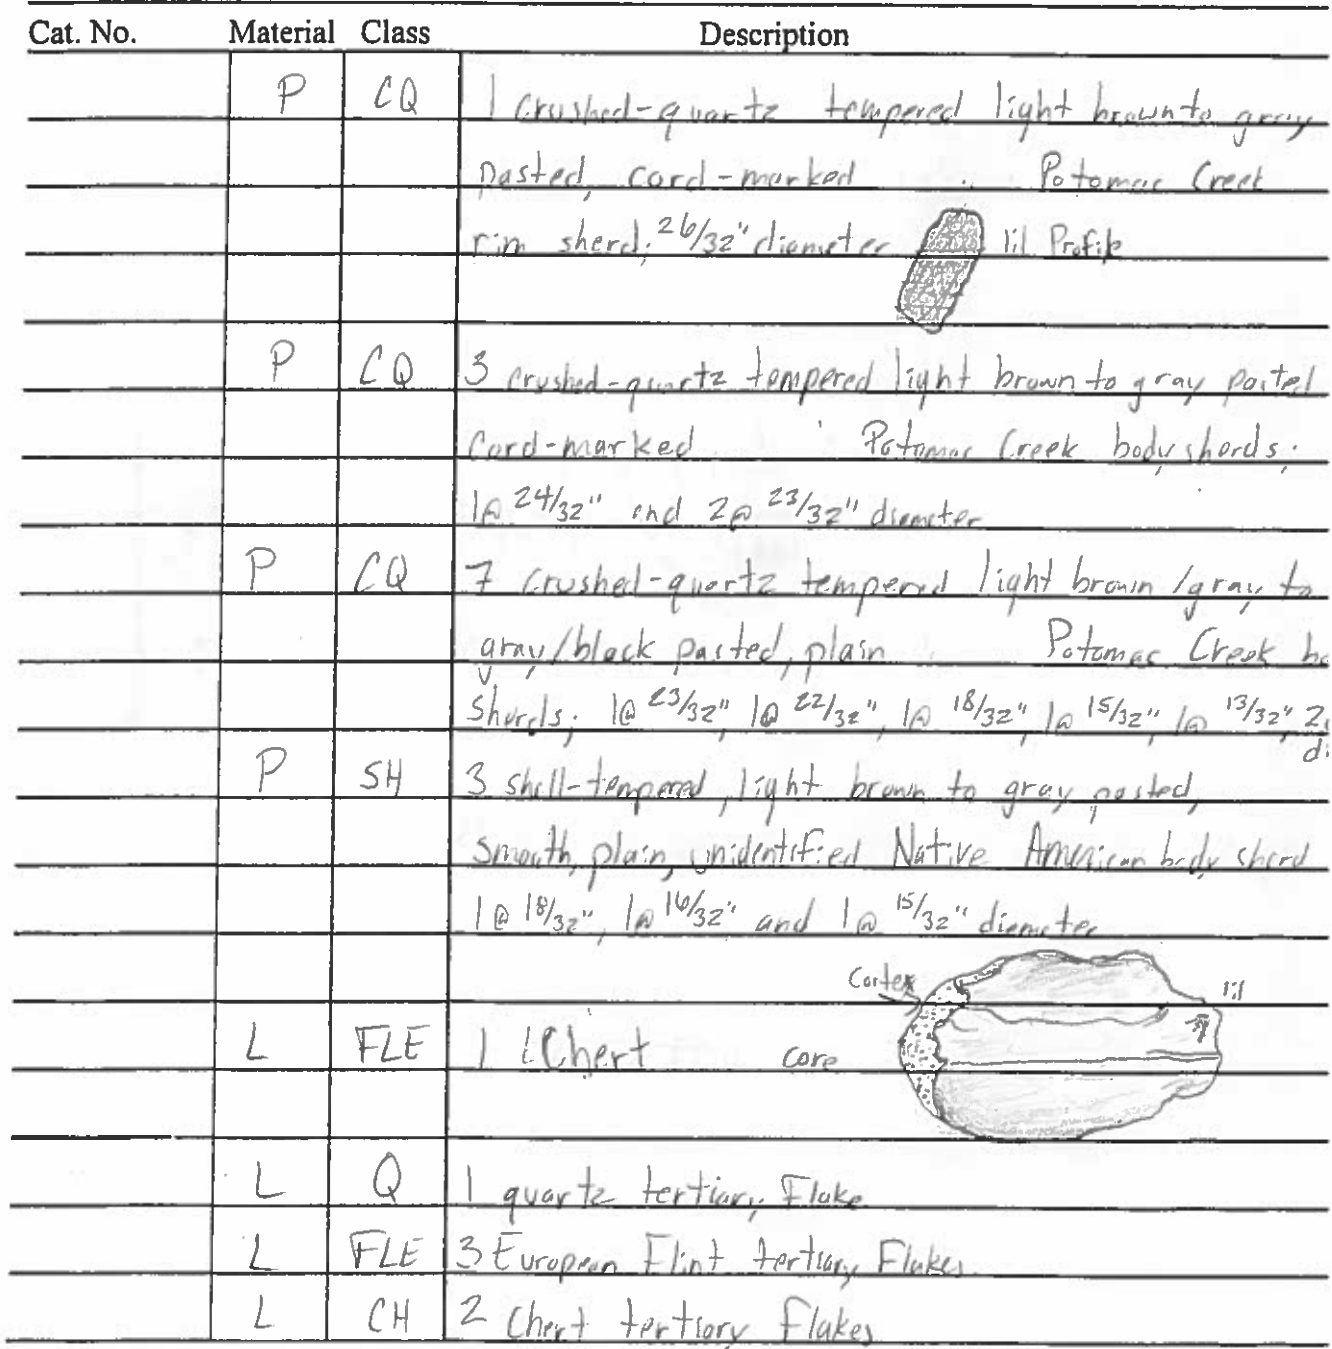 Cat. No. Material Class Description
P CQ 1 crushed-quartz tempered light brown to gray
pasted, cord-marked Potomac Creek
rim sherd; 26/32" diameter 1:1 Profile
P CQ 3 crushed-quartz tempered light brown to gray pasted
Cord-marked Potomac Creek body sherds;
1@ 24/32" and 2@ 23/32" diameter
P CQ 7 crushed-quartz tempered light brown/gray to
gray/black pasted, plain Potomac Creek
sherds; 1@ 23/32", 1@ 22/32", 1@ 18/32", 1@ 15/32", 1@ 13/32", 2
P SH 3 shell-tempered, light brown to gray pasted,
smooth, plain, unidentified Native American body sherd
1@ 18/32", 1@ 16/32" and 1@ 15/32" diameter
Cortex 1:1
L FLE 1 Chert core
L Q 1 quartz tertiary Flake
L FLE 3 European Flint tertiary Flakes
L CH 2 Chert tertiary Flakes